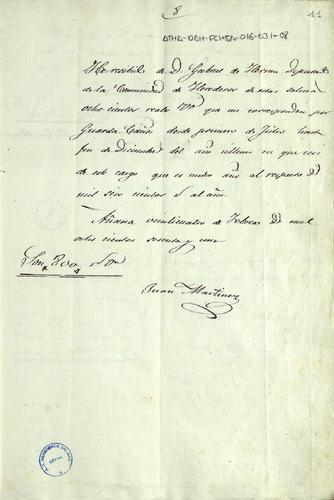 8
11
ATHA-DAH-FCHSA-016-031-08
He recibido de D. Gabriel de Herran Diputado
de la Comunidad de Herederos de estas salinas
ocho cientos reales Von que me corresponden por
Guarda Caños desde primero de Julio hasta
fin de Diciembre del año ultimo en que cesé
de este cargo que es medio año al respecto de
mil seis cientos rs al año.
Añana veinticuatro de Febrero de mil
ocho cientos sesenta y uno
Son, 800 rs von
Juan Martinez